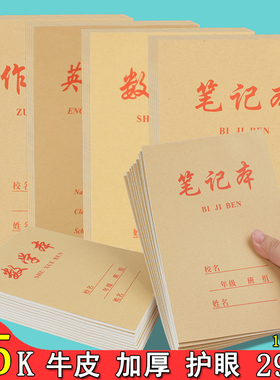 作
ZU
英
ENG
数
SH
笔记本
BI JI BEN
笔记本
BI JI BEN
校名
年级 班 组
姓名
数学本
SHU XUE BEN
校名
年级 班 组
姓名
5K 牛皮 加厚 护眼 29